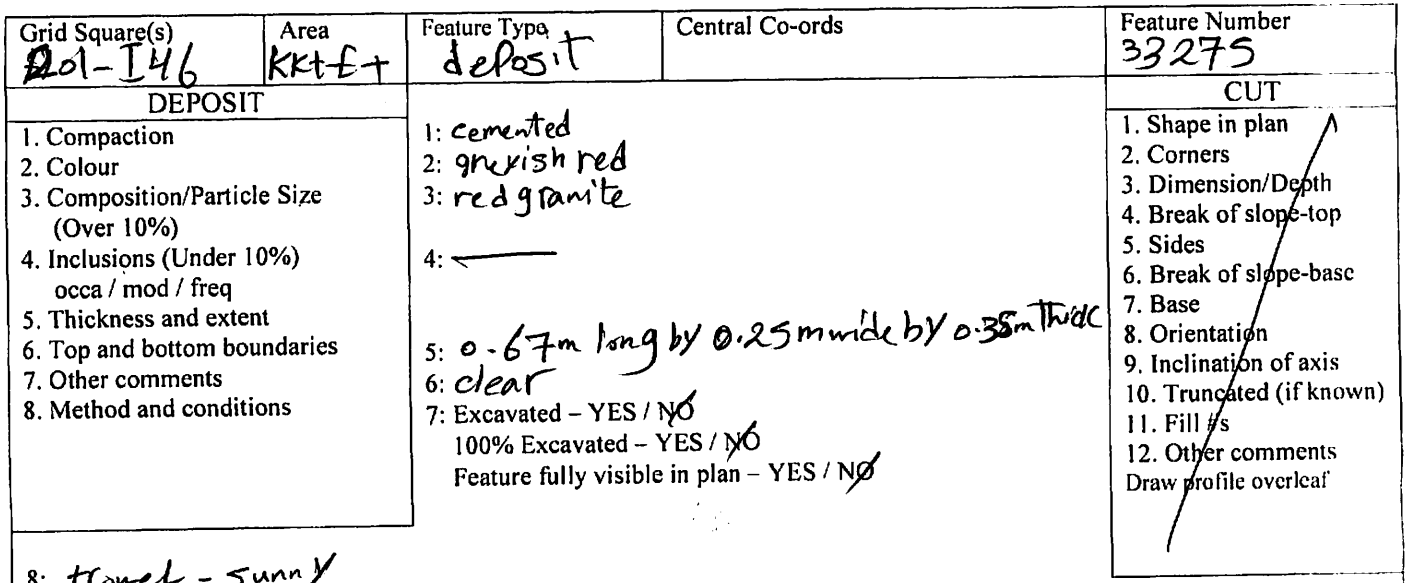 Grid Square(s) Area Feature Type Central Co-ords Feature Number
01-I46 KKT-E+ deposit 33275
DEPOSIT
1. Compaction
2. Colour
3. Composition/Particle Size
(Over 10%)
4. Inclusions (Under 10%)
occa / mod / freq
5. Thickness and extent
6. Top and bottom boundaries
7. Other comments
8. Method and conditions
1: cemented
2: greyish red
3: red granite
4: —
5: 0.67m long by 0.25m wide by 0.35m thick
6: clear
7: Excavated – YES / NO
100% Excavated – YES / NO
Feature fully visible in plan – YES / NO
CUT
1. Shape in plan
2. Corners
3. Dimension/Depth
4. Break of slope-top
5. Sides
6. Break of slope-base
7. Base
8. Orientation
9. Inclination of axis
10. Truncated (if known)
11. Fill #s
12. Other comments
Draw profile overleaf
8: trowel - sunny